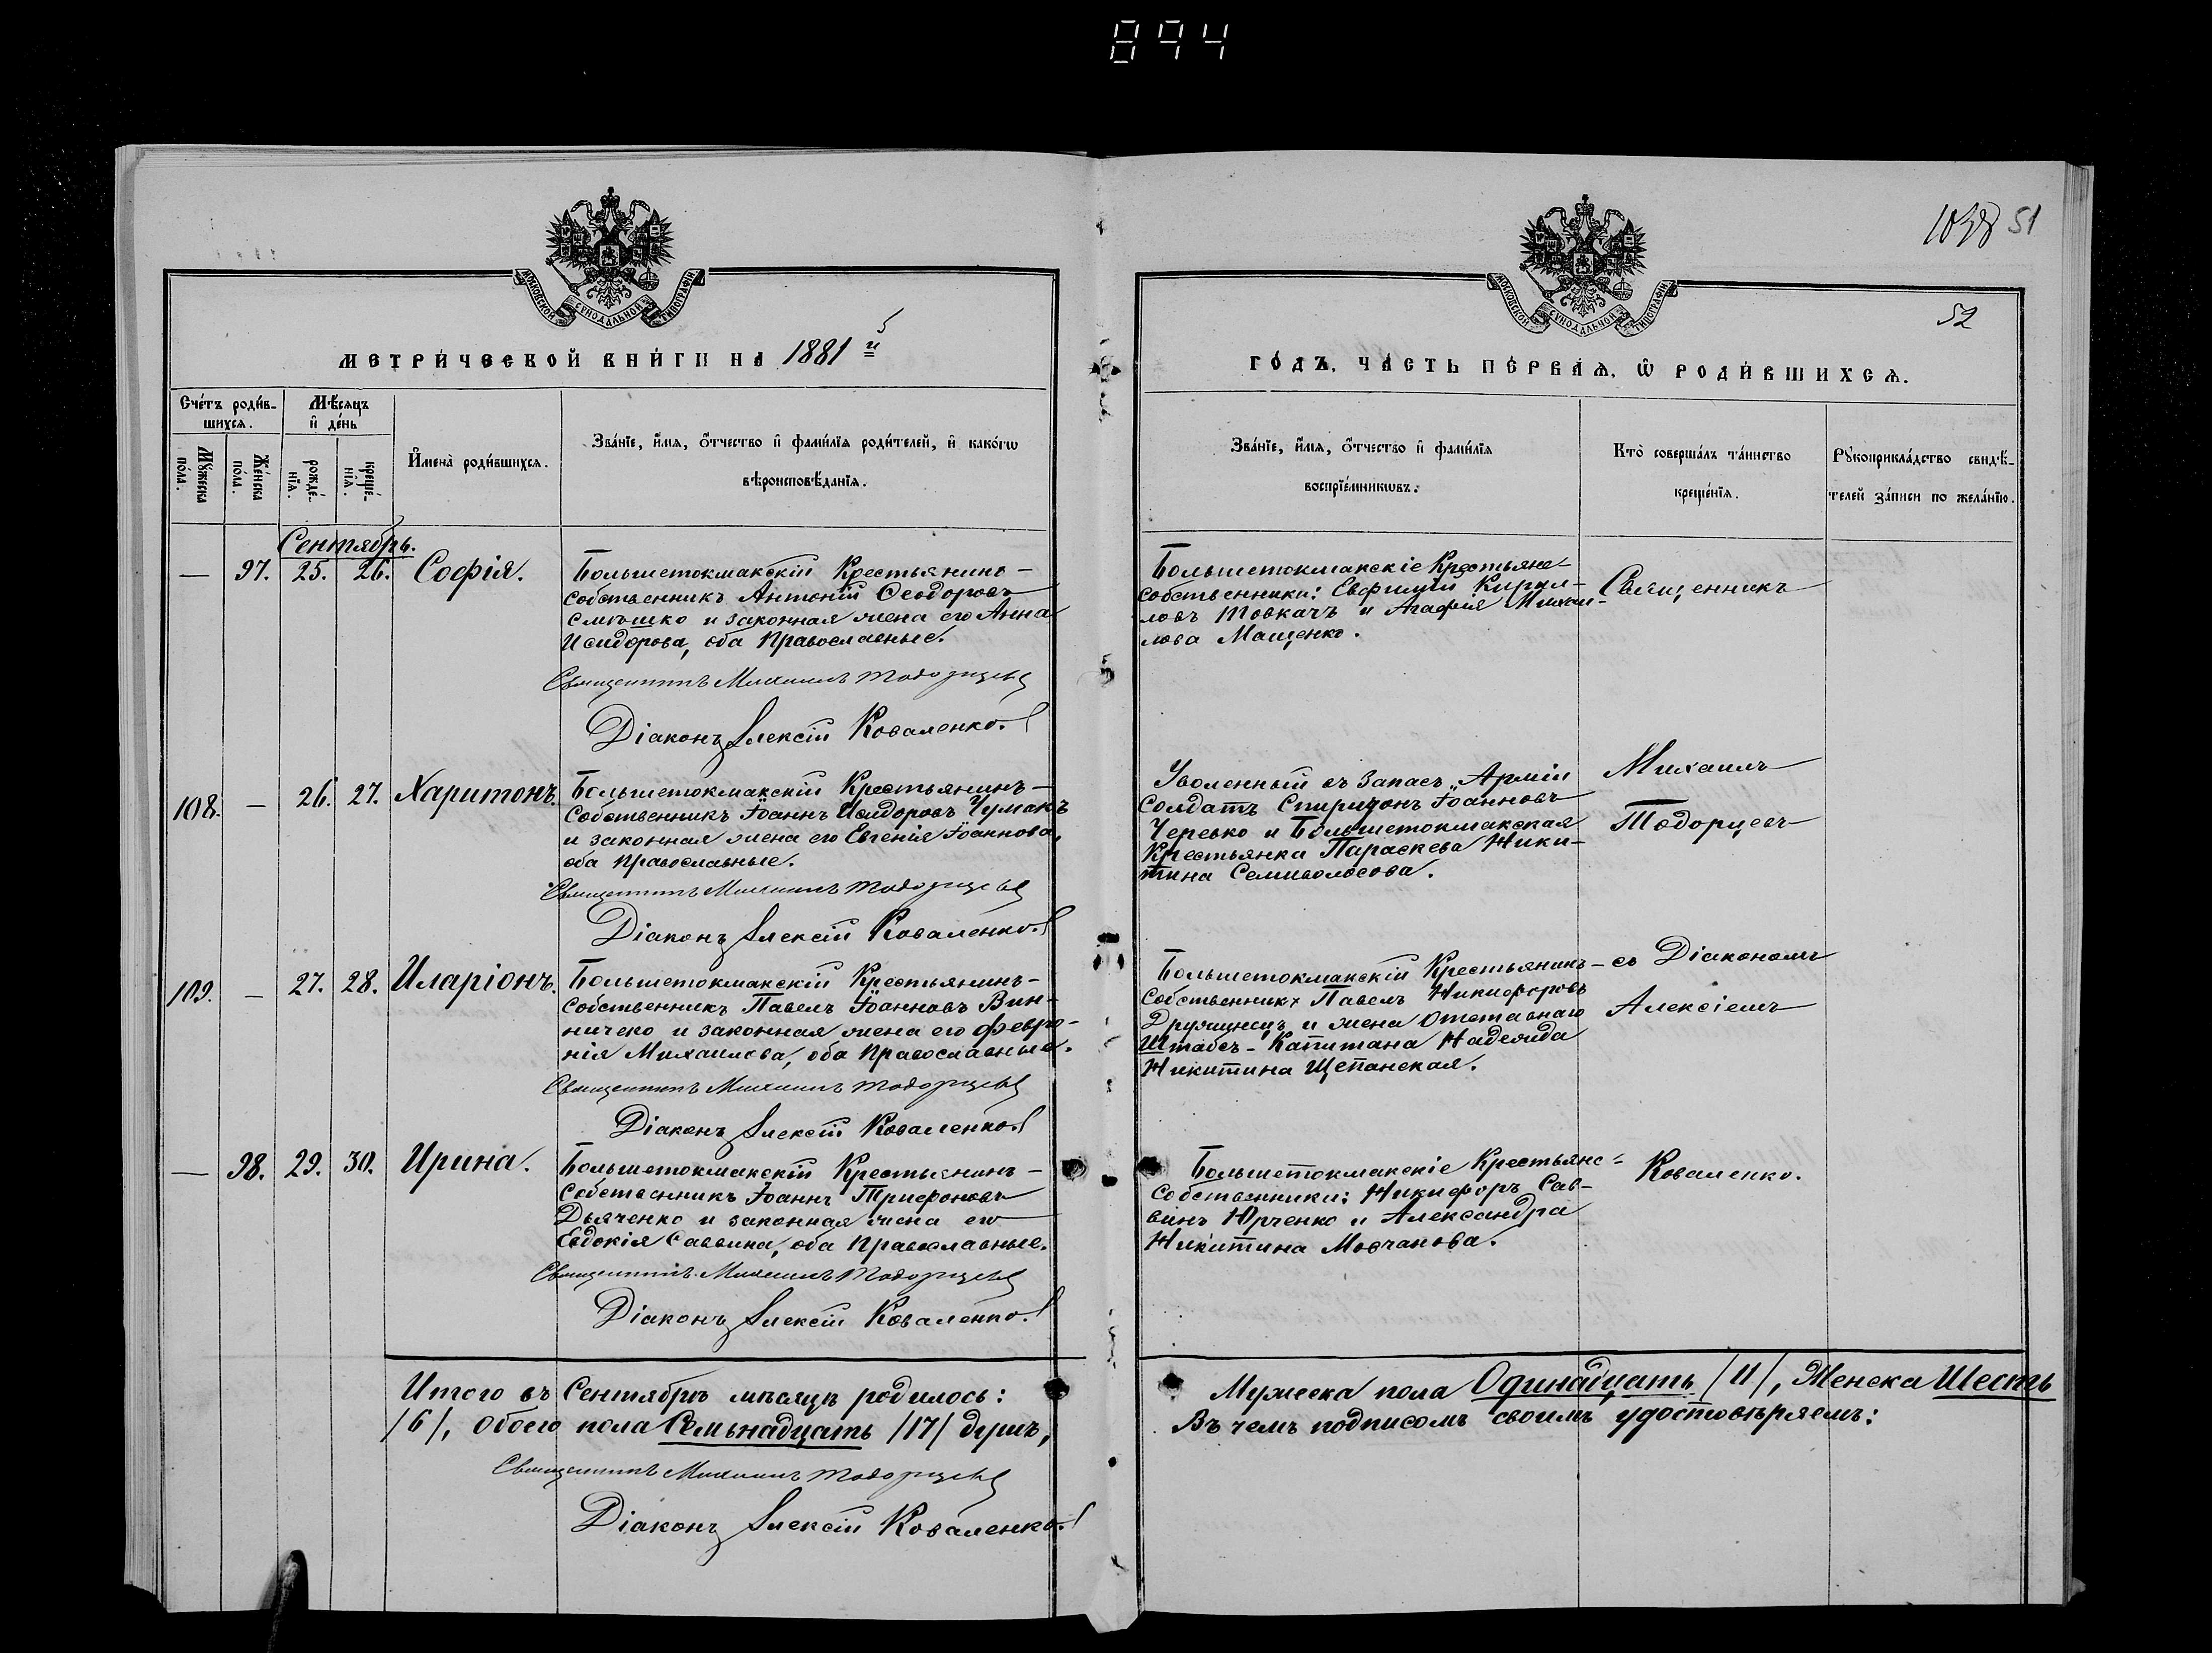 894
51
52
МОСКОВСКОЙ СѴНОДАЛЬНОЙ ТИПОГРАФІИ
МОСКОВСКОЙ СѴНОДАЛЬНОЙ ТИПОГРАФІИ
МЕТРИ́ЧЕСКОЙ КНИ́ГИ НА 1881 й
ГО́ДЪ, ЧА́СТЬ ПЕ́РВАЯ, Ѡ РОДИ́ВШИХСЯ.
Сче́тъ роди́в-
шихся.
Мꙋ́жеска по́ла.
Же́нска по́ла.
Мѣ́сяцъ и҆ де́нь
рожде́-
нїя.
креще́-
нїя.
И҆мена̀ роди́вшихся.
Зва́нїе, и҆́мя, ѻ҆́тчество и҆ фами́лїя роди́телей, и҆ како́гѡ
вѣроисповѣ́данїя.
Зва́нїе, и҆́мя, ѻ҆́тчество и҆ фами́лїя
воспрїе́мникѡвъ.
Кто̀ соверша́лъ та́инство
креще́нїя.
Рꙋкоприкла́дство свидѣ́-
телей за́писи по жела́нїю.
Сентябрь.
— 97. 25. 26. Софія.
Большетокмакскій Крестьянинъ-
собственникъ Антоній Ѳеодоровъ
Смѣшко и законная жена его Анна
Исидорова, оба Православные.
Священникъ Михаилъ Тодорцевъ
Діаконъ Алексій Коваленко.
Большетокмакскіе Крестьяне
собственники: Евфимій Кирил-
ловъ Товкачъ и Агафія Михаи-
лова Мащенко.
Священникъ
108. — 26. 27. Харитонъ.
Большетокмакскій Крестьянинъ-
Собственникъ Іоаннъ Исидоровъ Чумакъ
и законная жена его Евгенія Іоаннова,
оба Православные.
Священникъ Михаилъ Тодорцевъ
Діаконъ Алексій Коваленко.
Уволенный въ Запасъ Арміи
Солдатъ Спиридонъ Іоанновъ
Черевко и Большетокмакская
Крестьянка Параскева Ники-
тина Семиволосова.
Михаилъ
Тодорцевъ
109. — 27. 28. Иларіонъ.
Большетокмакскій Крестьянинъ-
Собственникъ Павелъ Іоанновъ Вин-
ничеко и законная жена его Февро-
нія Михаилова, оба Православные.
Священникъ Михаилъ Тодорцевъ
Діаконъ Алексій Коваленко.
Большетокмакскій Крестьянинъ-
Собственникъ Павелъ Никифоровъ
и жена Отставнаго
Штабсъ-Капитана Надежда
Никитина Щепанская.
съ Діакономъ
Алексіемъ
— 98. 29. 30. Ирина.
Большетокмакскій Крестьянинъ-
Собственникъ Іоаннъ Трифоновъ
Дьяченко и законная жена его
Евдокія Саввина, оба Православные.
Священникъ Михаилъ Тодорцевъ
Діаконъ Алексій Коваленко.
Большетокмакскіе Крестьяне-
Собственники: Никифоръ Сав-
винъ Юрченко и Александра
Никитина Мовчанова.
Коваленко.
Итого въ Сентябрѣ мѣсяцѣ родилось:
Мужеска пола Одинадцать /11/, Женска Шесть
/6/, Обоего пола Семьнадцать /17/ душъ,
Въ чемъ подписомъ своимъ удостовѣряемъ:
Священникъ Михаилъ Тодорцевъ
Діаконъ Алексій Коваленко.